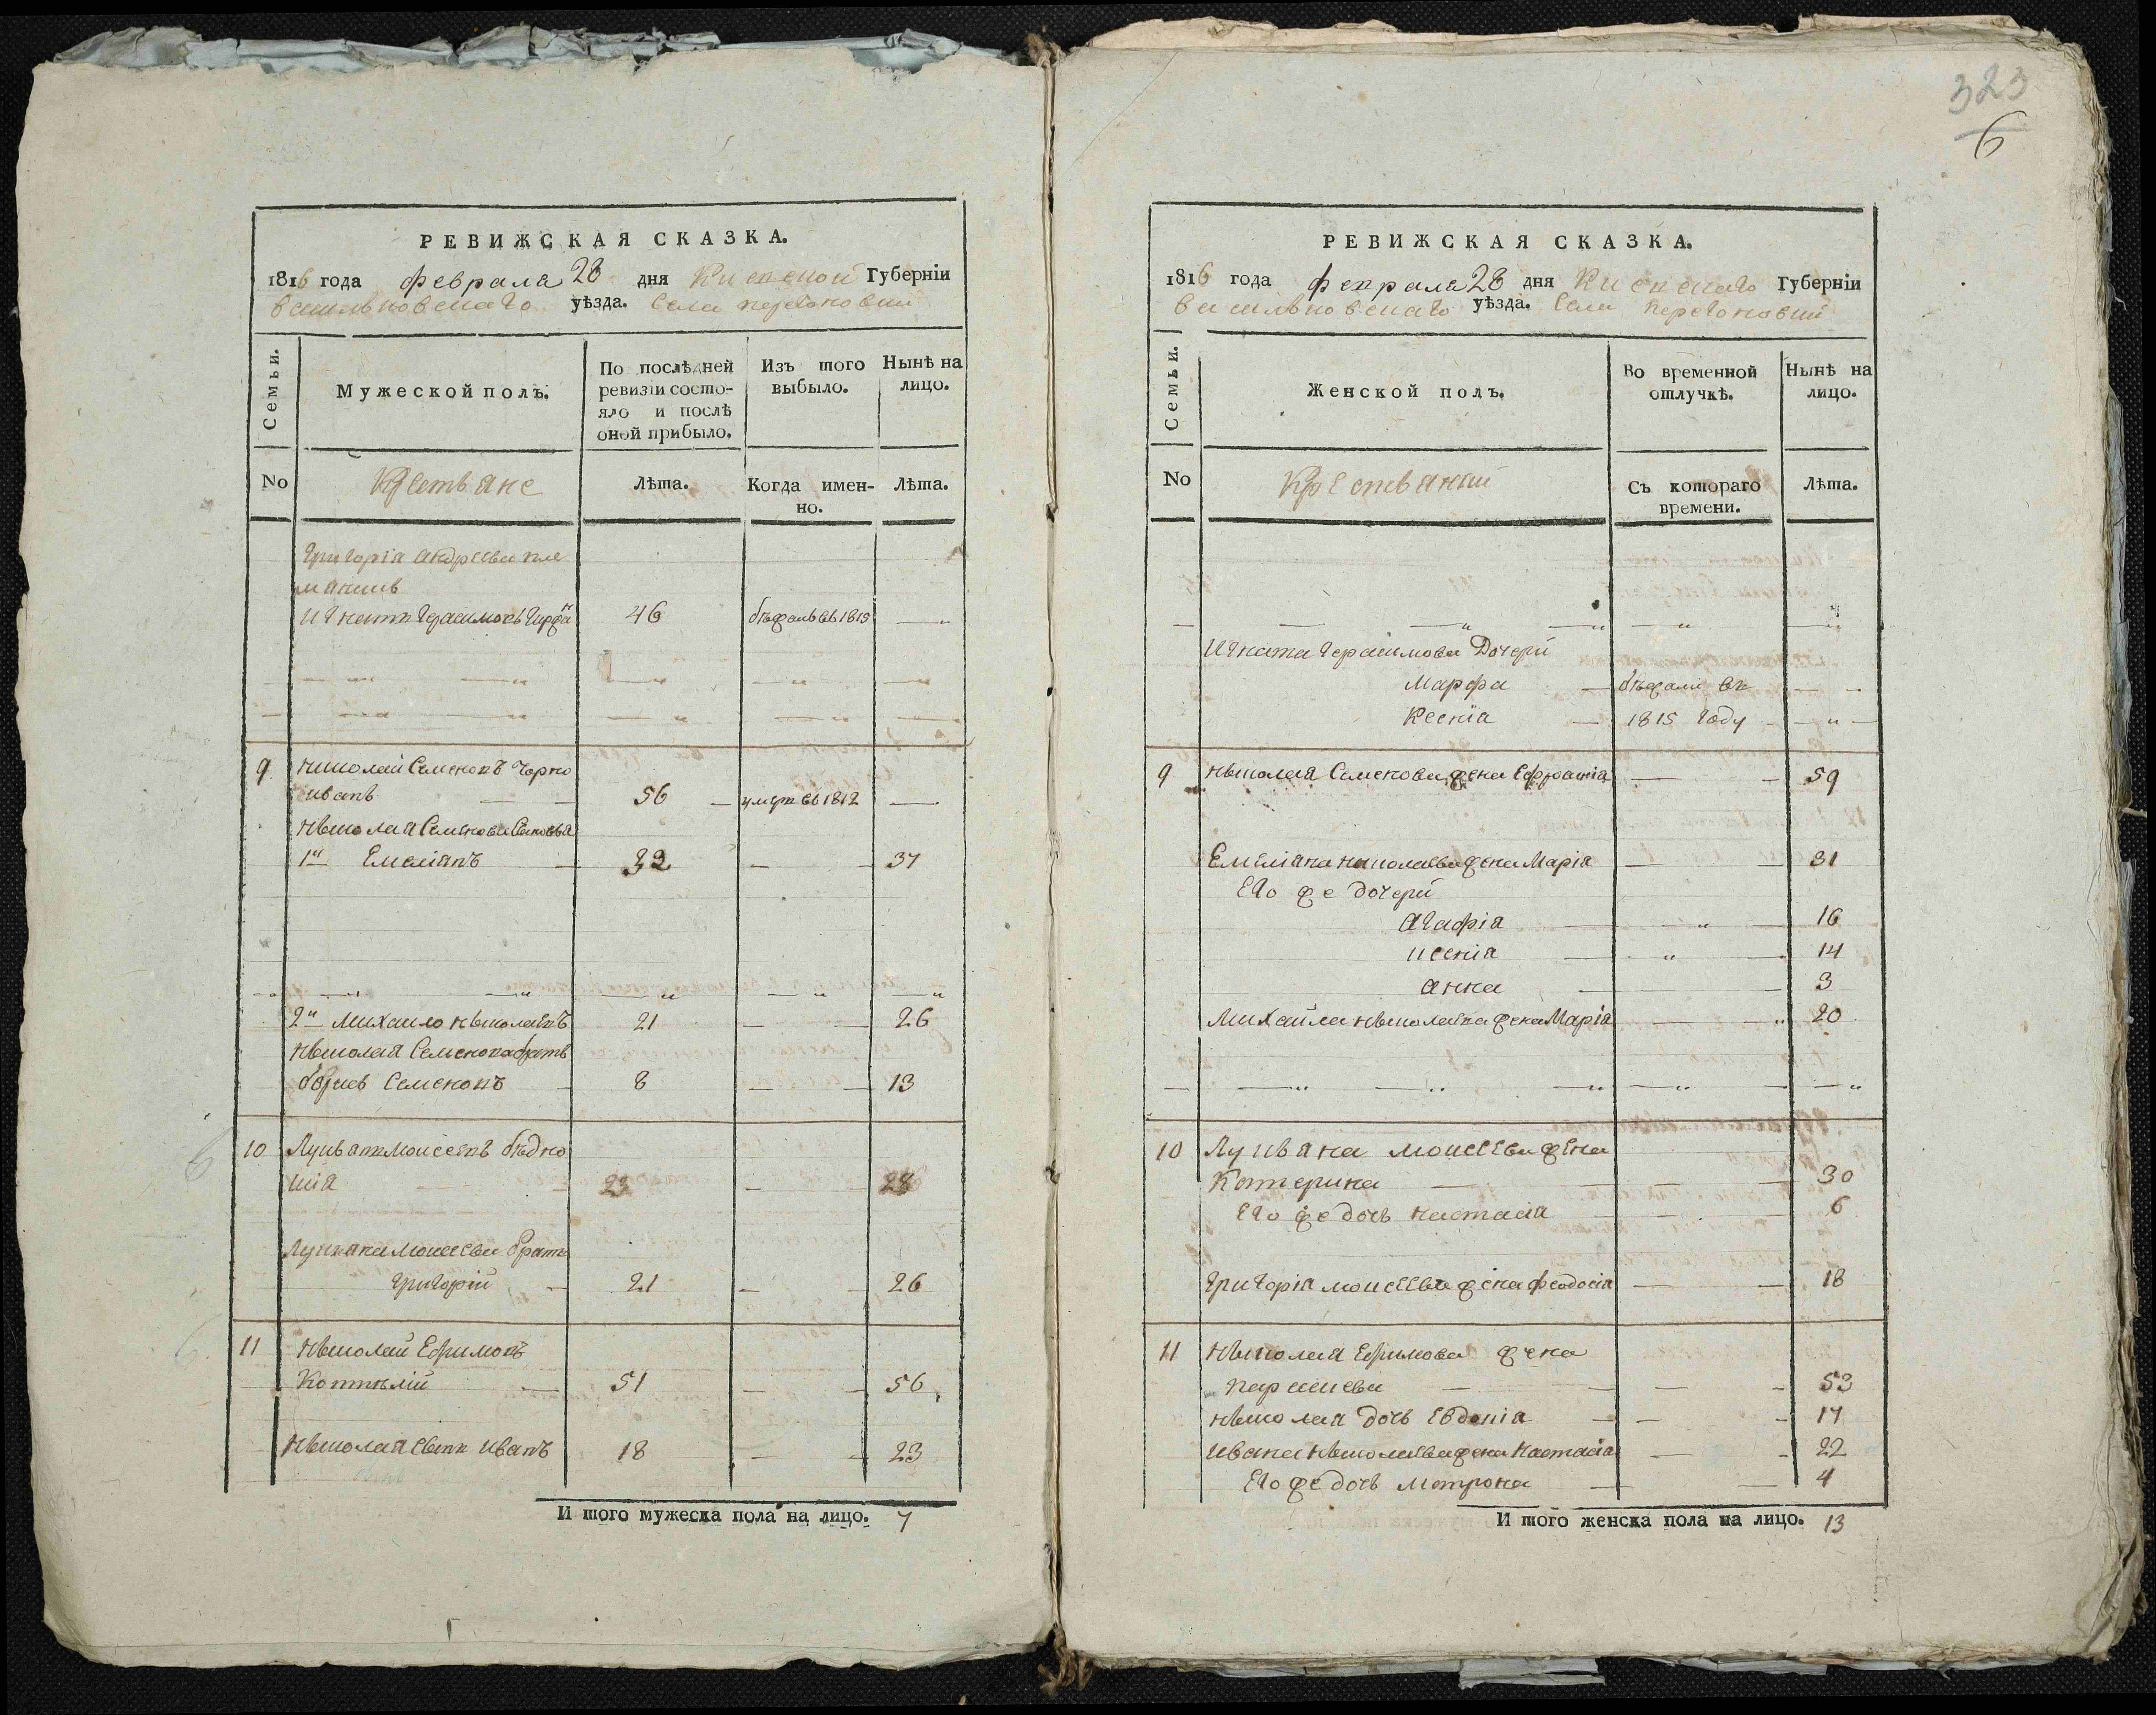 РЕВИЖСКАЯ СКАЗКА.
1816 года февраля 28 дня Киевской Губерніи
васильковскаго уѣзда. Села
Семьи.
Мужеской полъ.
По послѣдней ревизіи состояло и послѣ оной прибыло.
Изъ того выбыло.
Нынѣ на лицо.
No
Крестьяне
Лѣта.
Когда именно.
Лѣта.
Григорія андреева пле
мяникъ
Игнатъ Герасимовъ 46 бѣжалъ въ 1815
9 николай Семеновъ Черно
иванъ 56 умеръ въ 1812
николая Семенова Сыновья
1й Емеліянъ 32 37
2й Михайло николаевъ 21 26
николая Семенова братъ
борисъ Семеновъ 8 13
10 Лукьянъ Моисеевъ бѣдно
23 28
Лукьяна Моисеева братъ
Григорій 21 26
11 николай Ефимовъ
51 56
николая сынъ иванъ 18 23
И того мужеска пола на лицо. 7
323
6
РЕВИЖСКАЯ СКАЗКА.
1816 года февраля 28 дня Киевскаго Губерніи
васильковскаго уѣзда. Села
Семьи.
Женской полъ.
Во временной отлучкѣ.
Нынѣ на лицо.
No
Крестьянки
Съ котораго времени.
Лѣта.
Игната Герасимова Дочери
Марфа бѣжали въ
Ксенія 1815 году
9 николая Семенова жена Ефросинія 59
Емеліяна николаева жена Марія 31
Его же дочери
агафія 16
ксенія 14
анна 3
Михайла николаева жена Марія 20
10 Лукьяна моисеева жена
Катерина 30
Его же дочь настасія 6
Григорія моисеева жена феодосія 18
11 николая Ефимова жена
параскева 53
николая дочь Евдокія 17
ивана николаева жена настасія 22
Его же дочь мотрона 4
И того женска пола на лицо. 13